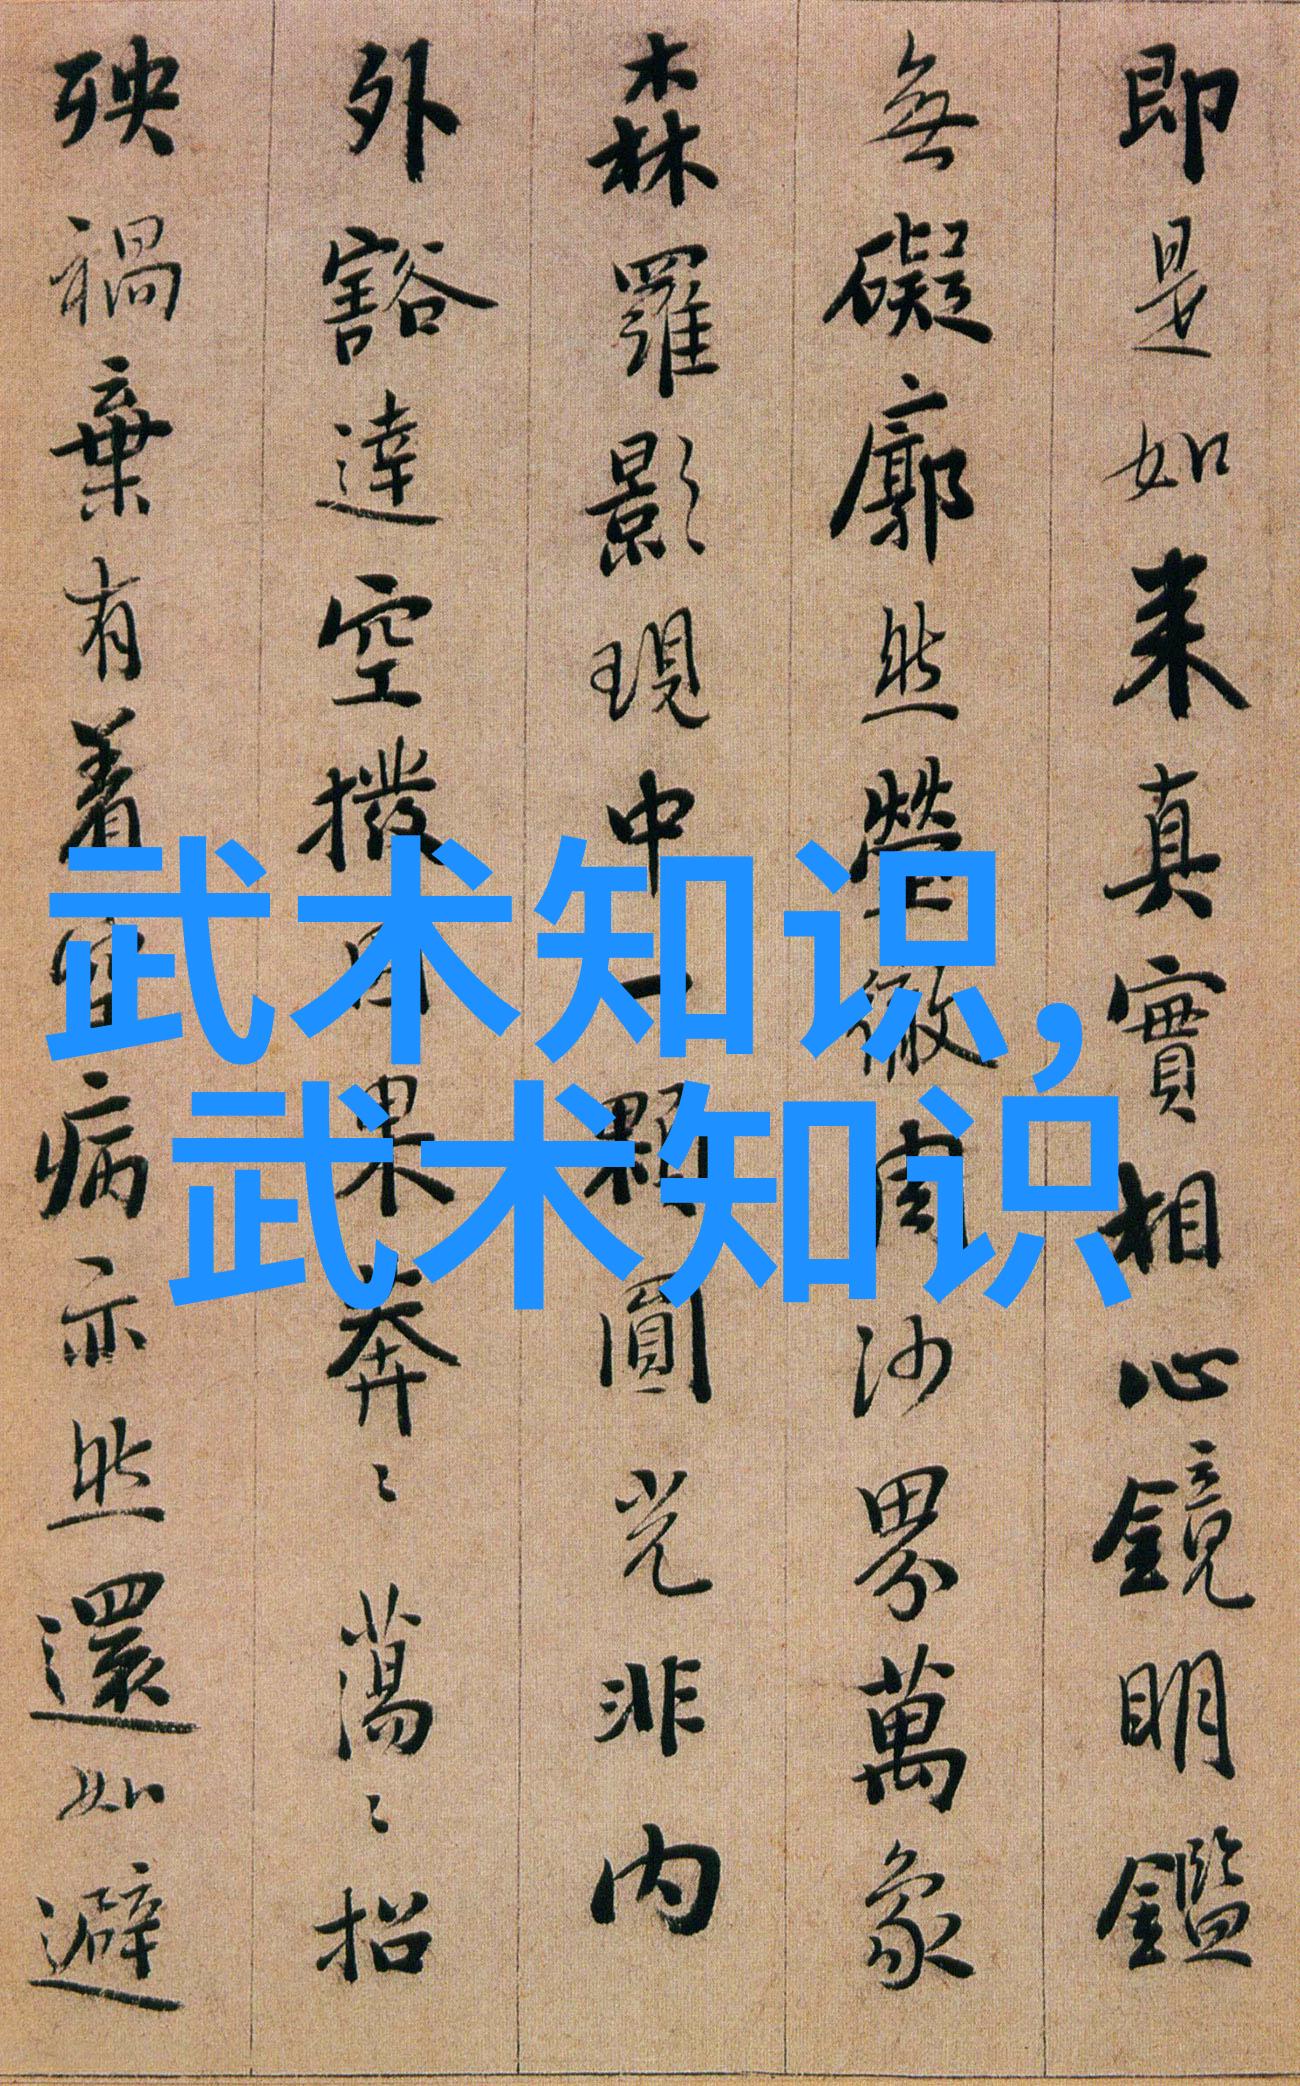 即是如来真實相心鏡明鑑
無礙廓然瑩徹周沙界萬象
森羅影現中一顆圓光非内
外豁達空撥因果莽〻蕩〻招
殃禍棄有着空病亦然還如避
武术知识,
武术知识